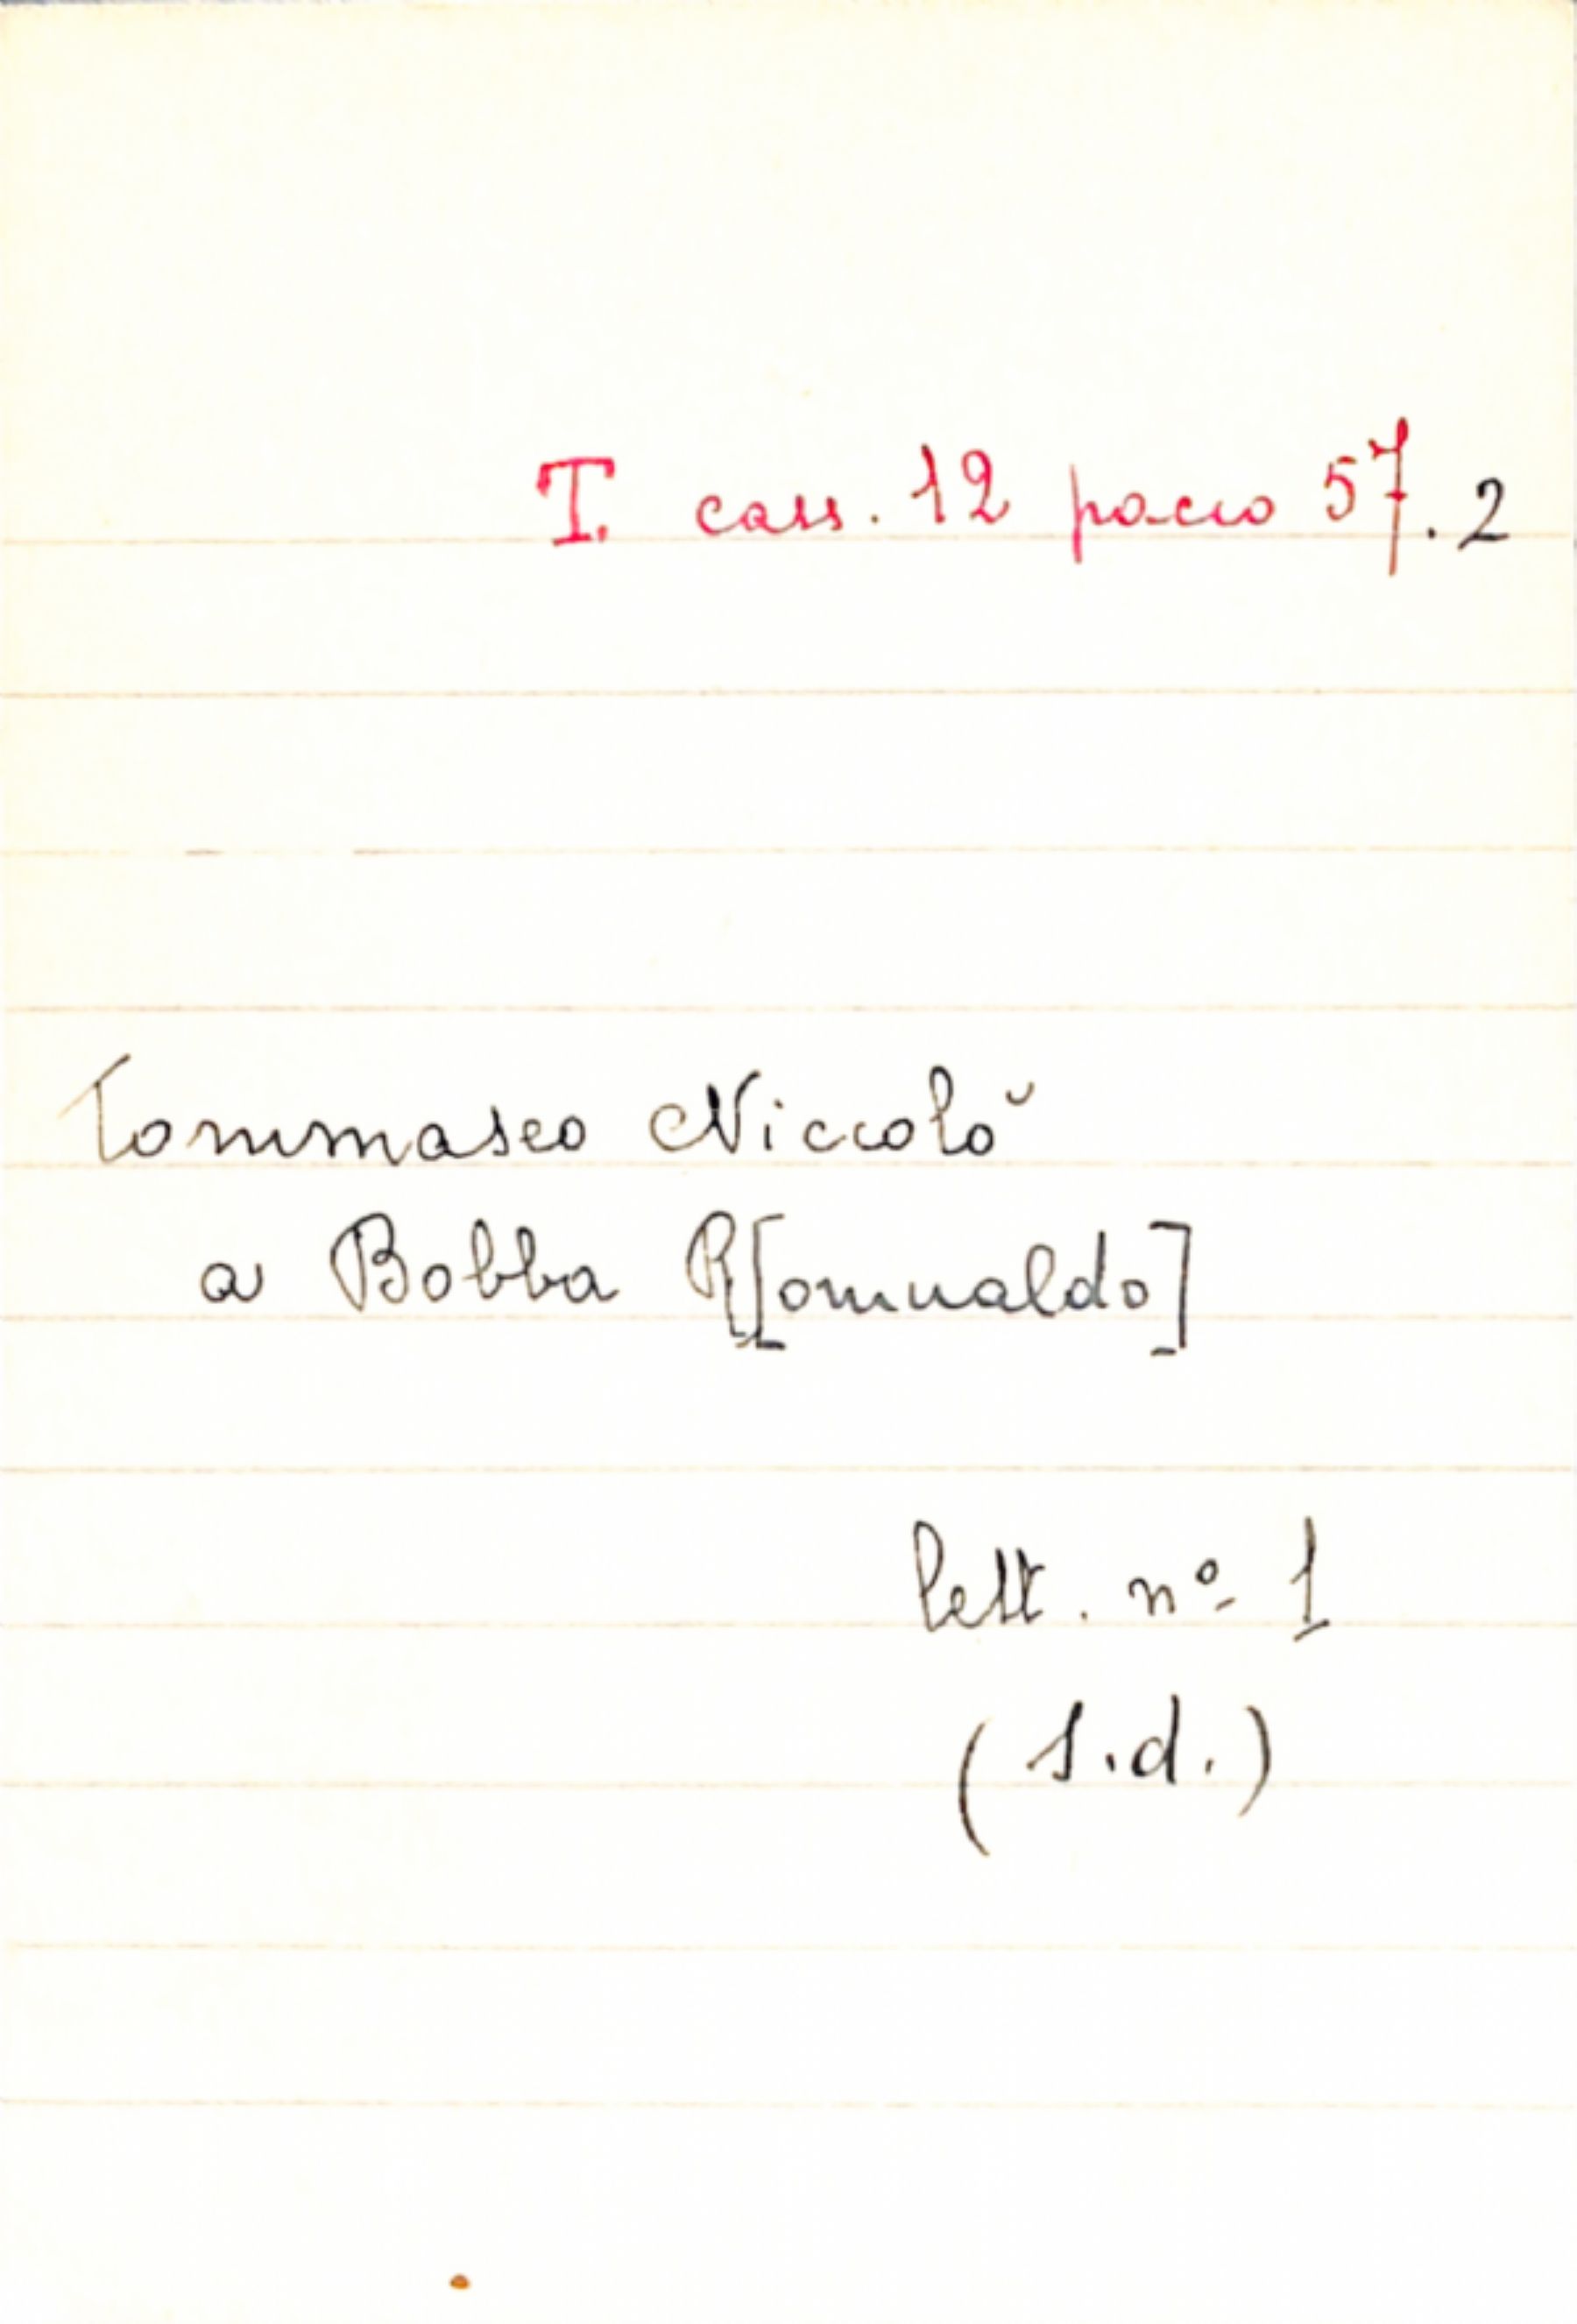 T. cass. 12 pacco 57.2
Tommaseo Niccolò
a Bobba R[omualdo]
lett. nº 1
(s.d.)